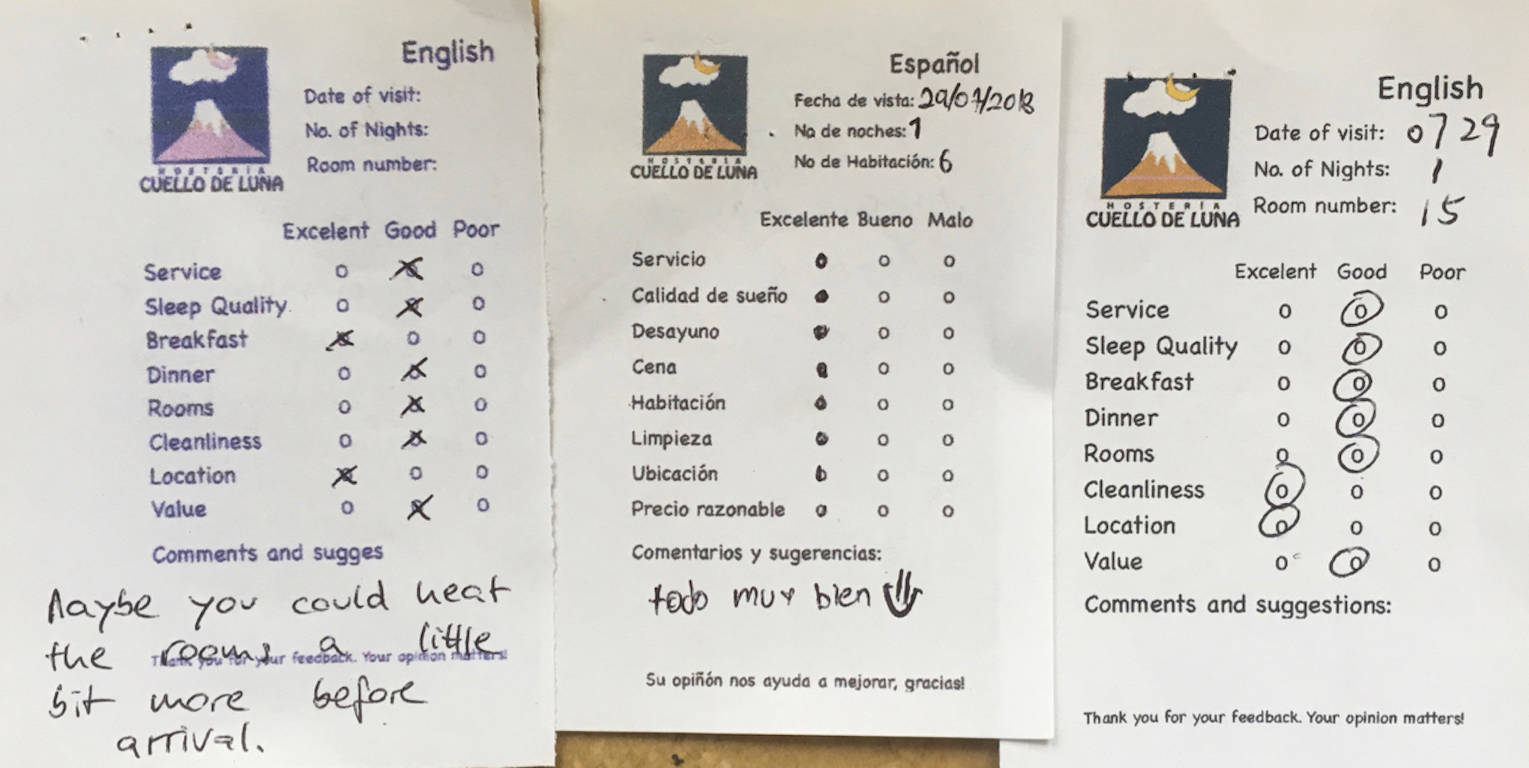 English
Date of visit:
No. of Nights:
Room number:
HOSTERÍA
CUELLO DE LUNA
Excelent Good Poor
Service
Sleep Quality
Breakfast
Dinner
Rooms
Cleanliness
Location
Value
Comments and sugges
Maybe you could heat
the rooms a little
Thank you for your feedback. Your opinion matters!
bit more before
arrival.
Español
Fecha de vista: 29/07/2018
No de noches: 1
No de Habitación: 6
HOSTERÍA
CUELLO DE LUNA
Excelente Bueno Malo
Servicio
Calidad de sueño
Desayuno
Cena
Habitación
Limpieza
Ubicación
Precio razonable
Comentarios y sugerencias:
todo muy bien
Su opiñón nos ayuda a mejorar, gracias!
English
Date of visit: 0729
No. of Nights: 1
Room number: 15
HOSTERÍA
CUELLO DE LUNA
Excelent Good Poor
Service
Sleep Quality
Breakfast
Dinner
Rooms
Cleanliness
Location
Value
Comments and suggestions:
Thank you for your feedback. Your opinion matters!